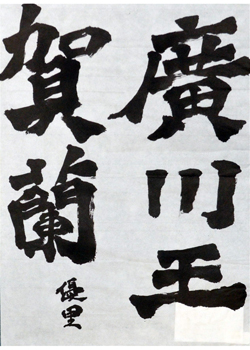 廣川王
賀蘭
優里